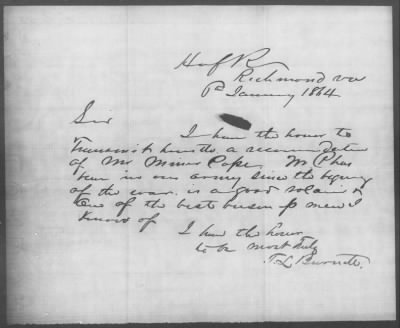 H of R
Richmond va
January 1864
Sir
I have the honor to
Transmit herewith a recommendation
of Mr Miner Pope. Mr P has
been in our army since the begining
of the war. is a good soldier &
One of the best business men I
know of
I have the honor
to be most truly
T. L. Burnett